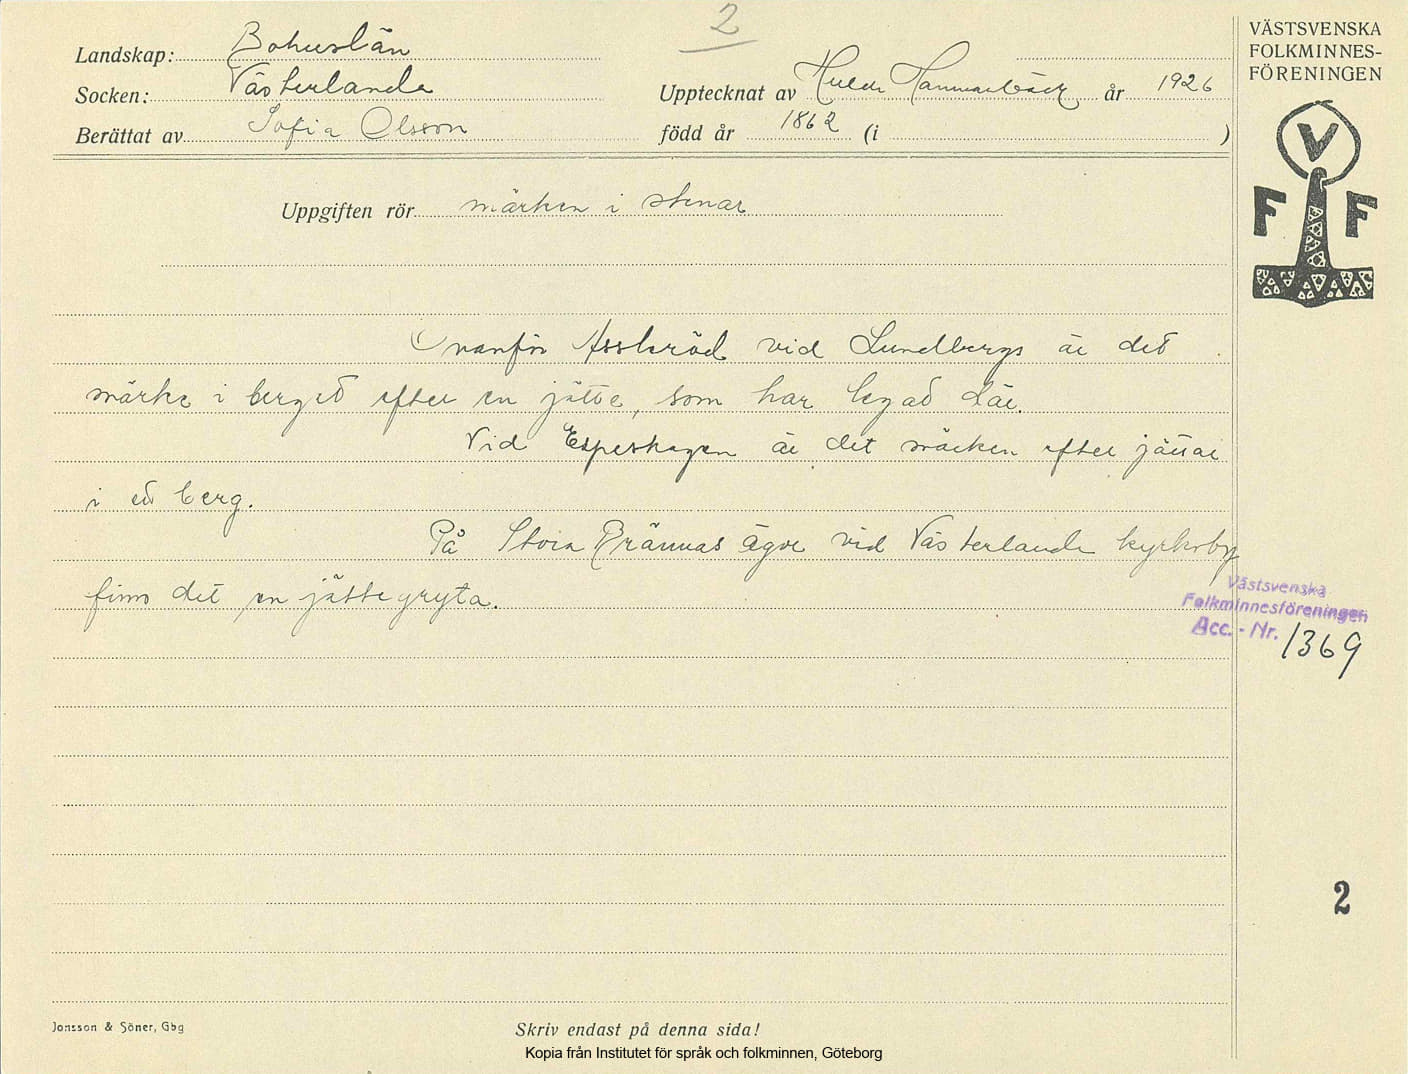 2
VÄSTSVENSKA
FOLKMINNES-
FÖRENINGEN
V
F F
Landskap: Bohuslän
Socken: Västerlanda
Upptecknat av Hulda Hammarbäck år 1926
Berättat av Sofia Olsson
född år 1862 (i )
Uppgiften rör märken i stenar
Ovanför Asskeröd vid Lundbergs är det
märke i berget efter en jätte, som har legat där.
Vid Espeskagen är det märken efter jättar
i ett berg.
På Stora Brännas ägor vid Västerlanda kyrkoby
finns det en jättegryta.
Västsvenska
Folkminnesföreningen
Acc. - Nr. 1369
2
Jonsson & Söner, Gbg
Skriv endast på denna sida!
Kopia från Institutet för språk och folkminnen, Göteborg